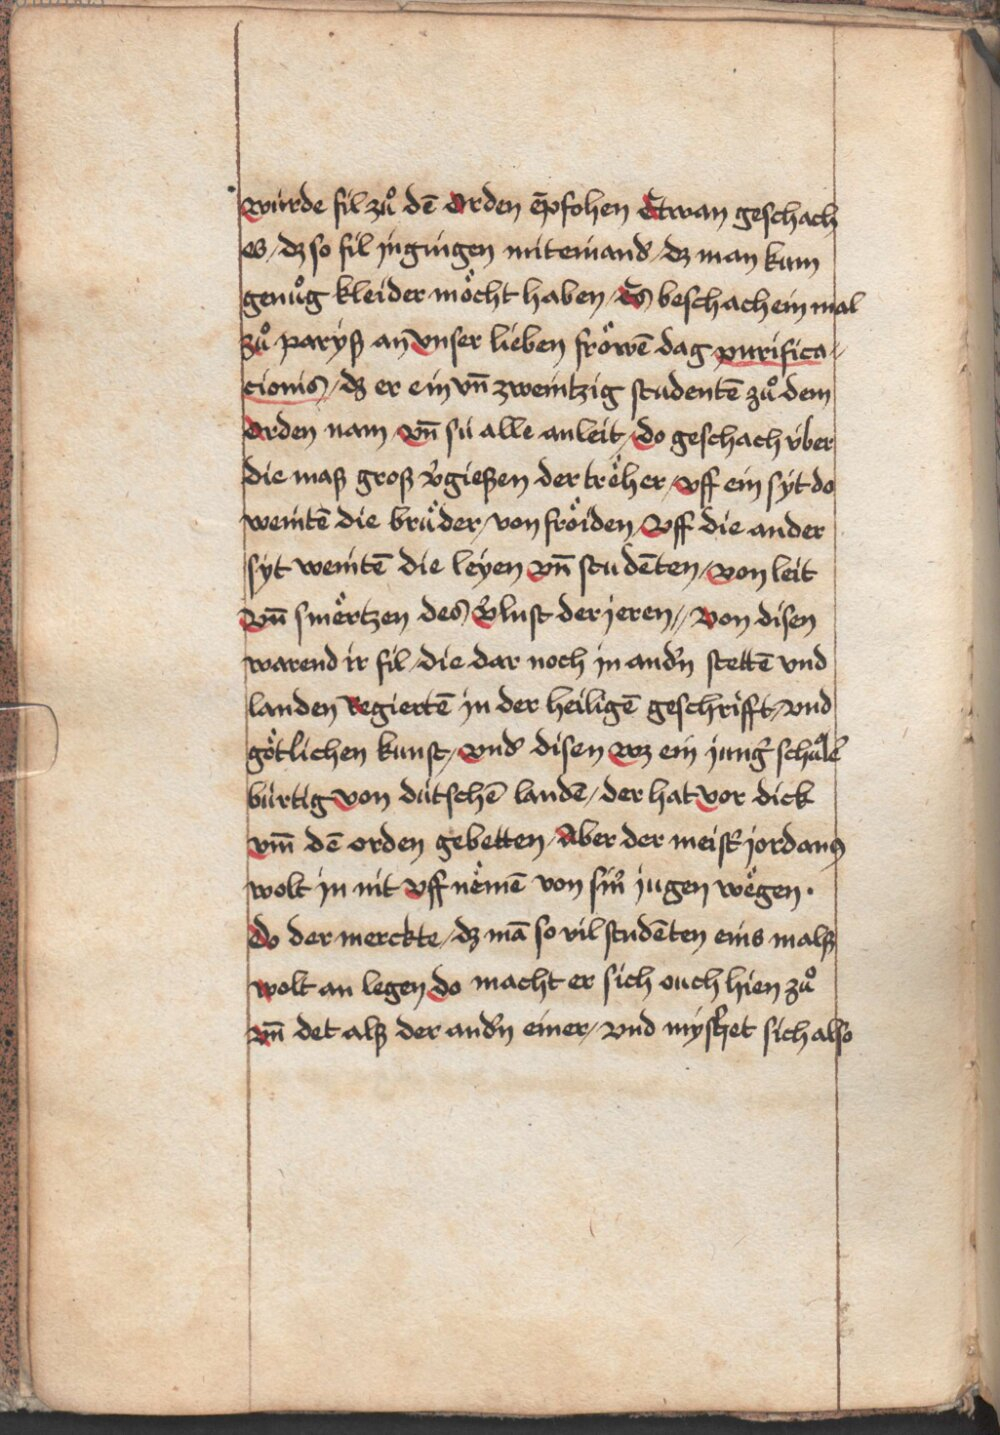 wurde fil zuͦ dē Orden ēpfohen Etwan geschach
es / dz so fil jngingen miteinand̛ / dz man kum
genuͦg kleider moͤcht haben / Es beschach ein mal
zuͦ paryß an vnser lieben froͤwē dag purifica-
cionis / dz er ein vn̄ zweintzig studentē zuͦ dem
orden nam / vn̄ sú alle anleit / do geschach v́ber
die maß groß v̛gießen der treͤher / vff ein syt do
weintē die bruͤder / von froͤiden / Vff die ander
syt weintē die leyen vn̄ studēten / von leit
Vn̄ smeͤrtzen des v̛lust der jeren // Von disen
warend ir fil / die dar noch in and̛n stettē vnd
landen Regiertē in der heiligē geschrifft / vnd
goͤtlichen kunst / vnd̛ disen wz ein jung̛ schuͦle̛
búrtig von dútschē landē / der hat vor dick
vm̄ dē orden gebetten / Aber der meist̛ jordanus
wolt jn nit vff neͤmē von sin̛ jugen weͤgen ·
Do der merckte / dz mā so vil studēten eins malß
wolt an legen do macht er sich ouch hien zuͦ
vn̄ det alß der and̛n einer / vnd mysc̛het sich also